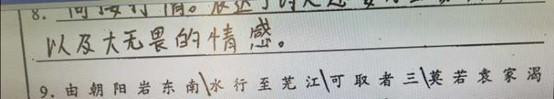 8.
以及大无畏的情感。
9. 由朝阳岩东南\水行至芜江\可取者三\莫若袁家渴